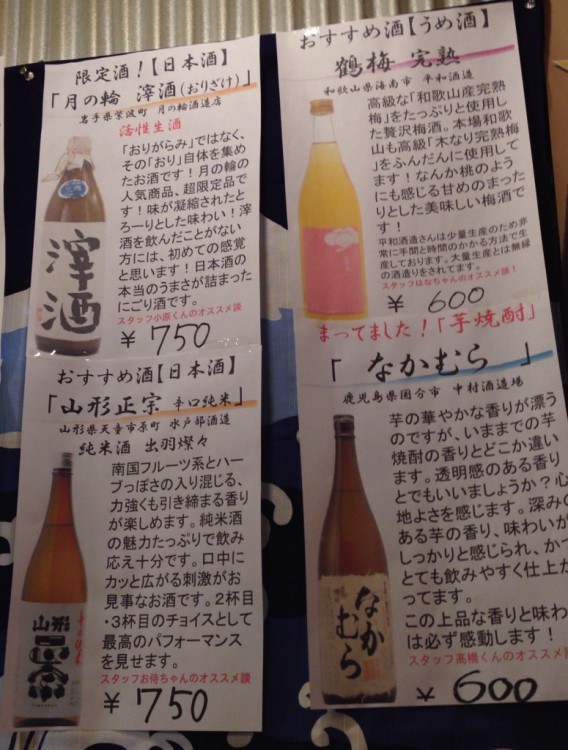 限定酒！【日本酒】
「月の輪 滓酒(おりざけ)」
岩手県紫波町 月の輪酒造店
活性生酒
「おりがらみ」ではなく、
その「おり」自体を集め
たお酒です！月の輪の
人気商品、超限定品で
す！味が凝縮されたと
ろーりとした味わい！滓
酒を飲んだことがない
方には、初めての感覚
と思います！日本酒の
本当のうまさが詰まった
にごり酒です。
スタッフ小原くんのオススメ談
¥ 750
滓酒
おすすめ酒【うめ酒】
鶴梅 完熟
和歌山県海南市 平和酒造
高級な「和歌山産完熟
梅」をたっぷりと使用し
た贅沢梅酒。本場和歌
山も高級「木なり完熟梅
」をふんだんに使用して
ます！なんか桃のよう
にも感じる甘めのまった
りとした美味しい梅酒で
す！
平和酒造さんは少量生産のため非
常に手間と時間のかかる方法で生
産しております。大量生産とは無縁
の酒造りをされてます。
スタッフはなちゃんのオススメ談！
¥ 600
おすすめ酒【日本酒】
「山形正宗 辛口純米」
山形県天童市原町 水戸部酒造
純米酒 出羽燦々
南国フルーツ系とハー
ブっぽさの入り混じる、
力強くも引き締まる香り
が楽しめます。純米酒
の魅力たっぷりで飲み
応え十分です。口中に
カッと広がる刺激がお
見事なお酒です。2杯目
・3杯目のチョイスとして
最高のパフォーマンス
を見せます。
スタッフお侍ちゃんのオススメ談
¥750
山形
正宗
まってました！「芋焼酎」
「 なかむら 」
鹿児島県国分市 中村酒造場
芋の華やかな香りが漂う
のですが、いままでの芋
焼酎の香りとどこか違い
ます。透明感のある香り
とでもいいましょうか？心
地よさを感じます。深みの
ある芋の香り、味わいが
しっかりと感じられ、かつ
とても飲みやすく仕上が
ってます。
この上品な香りと味わ
は必ず感動します！
スタッフ高橋くんのオススメ談
¥ 600
なかむら